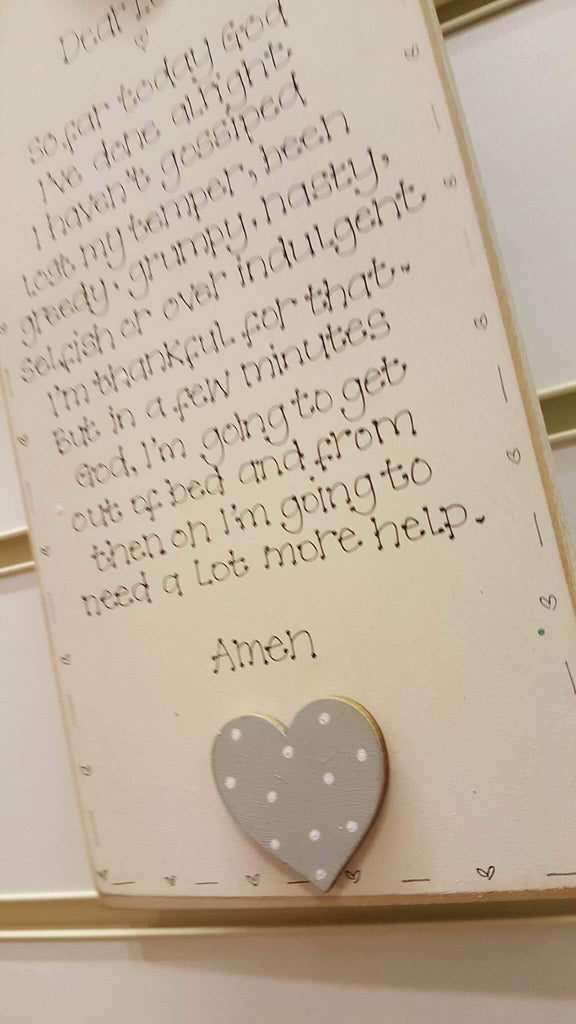 Dear
So far today God
I've done alright
I haven't gossiped
lost my temper, been
greedy, grumpy, nasty,
selfish or over indulgent
I'm thankful for that.
But in a few minutes
God, I'm going to get
out of bed and from
then on I'm going to
need a lot more help.
Amen